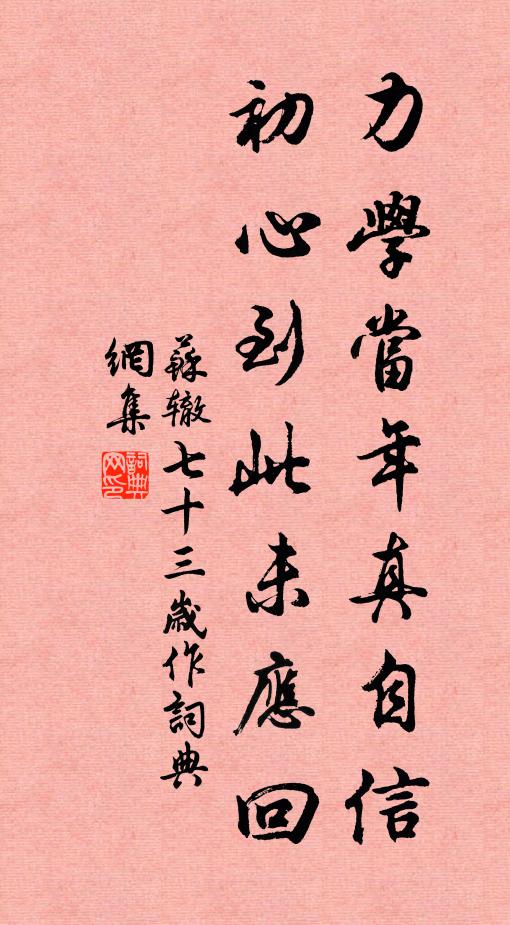 力學當年真自信
初心到此未應回
蘇轍七十三歲作詞典
網集
詞典
网印